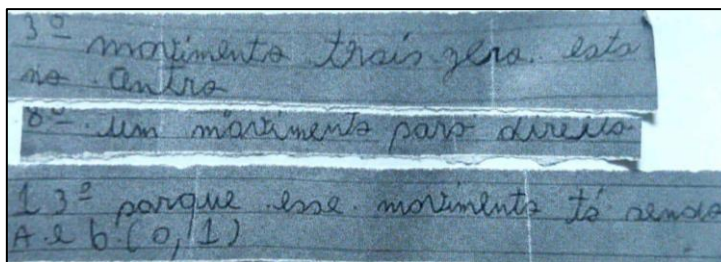 3º movimento trais zero. esta
no centro
8º um movimento para direita
13º porque esse movimento tá sendo
A e b (0, 1)